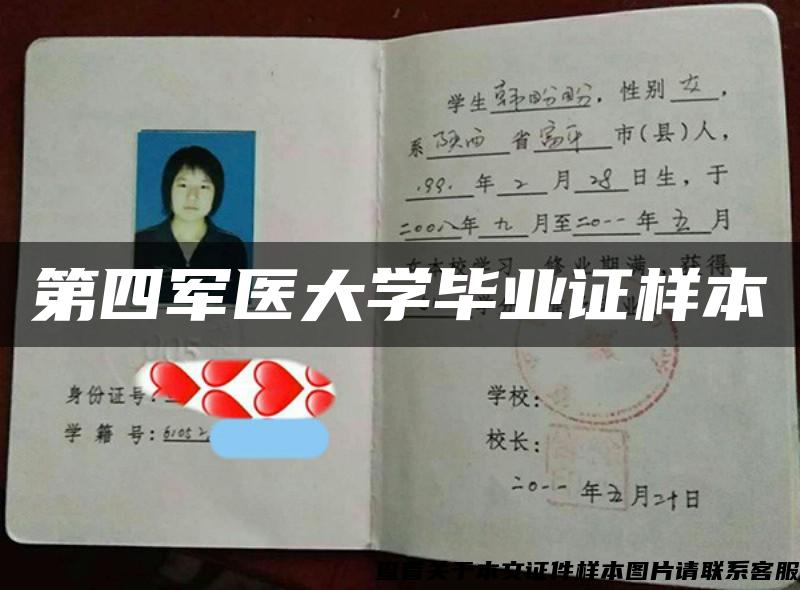 学生韩盼盼,性别女,
系陕西省富平市(县)人,
1991年2月28日生,于
二00八年九月至二0一一年五月
在本校学习 修业期满,获得
第四军医大学毕业证样本
身份证号:
学籍号:61052
学校:
校长:
二0一一年五月二十日
查看关于本文证件样本图片请联系客服